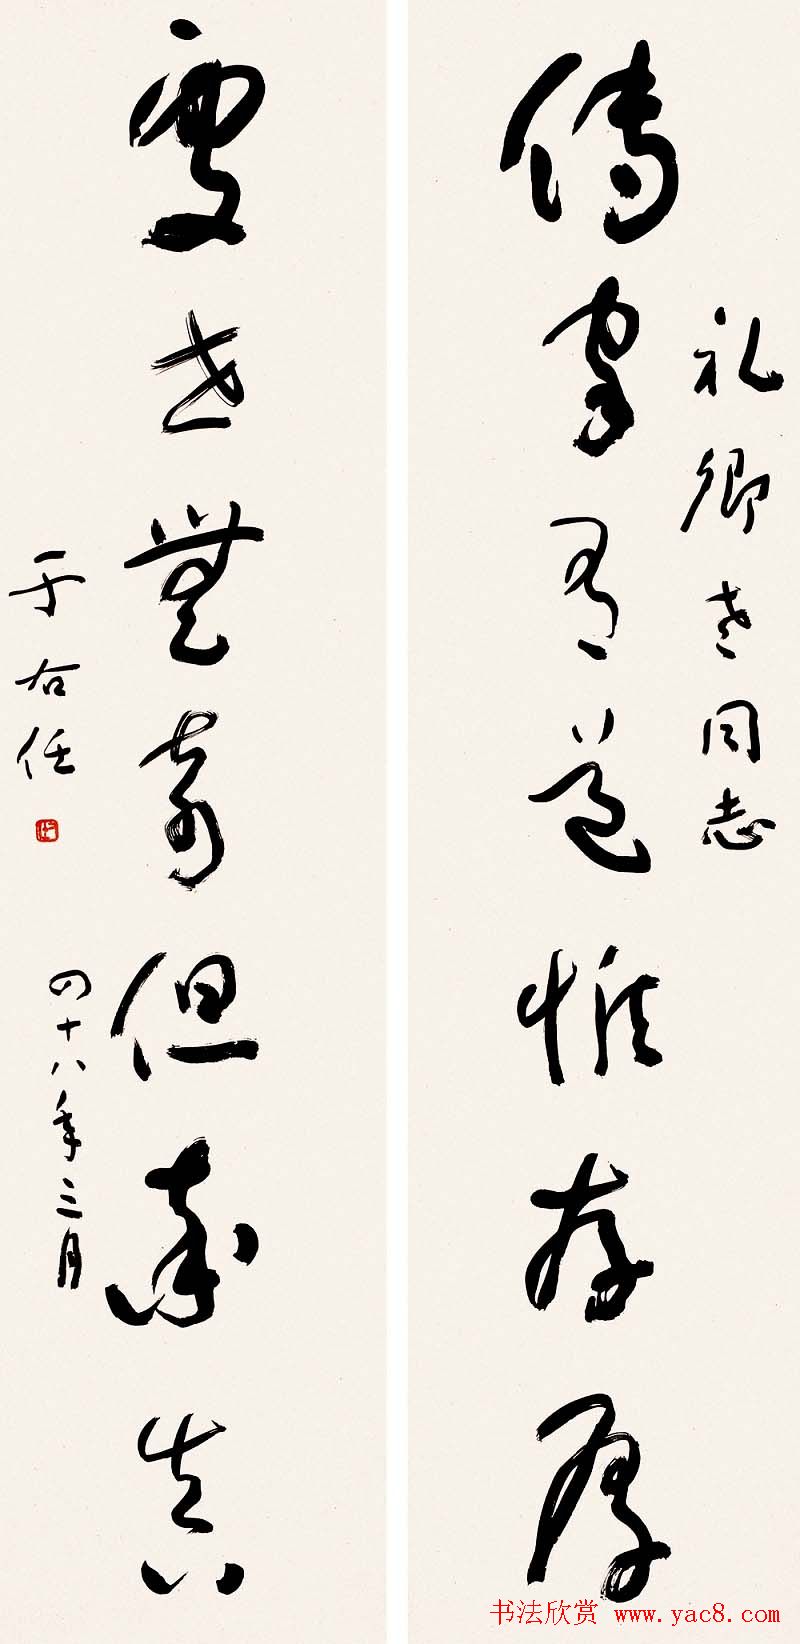 礼卿老同志
傳家有道惟存厚
處世無奇但率真
四十八年三月
于右任
书法欣赏 www.yac8.com